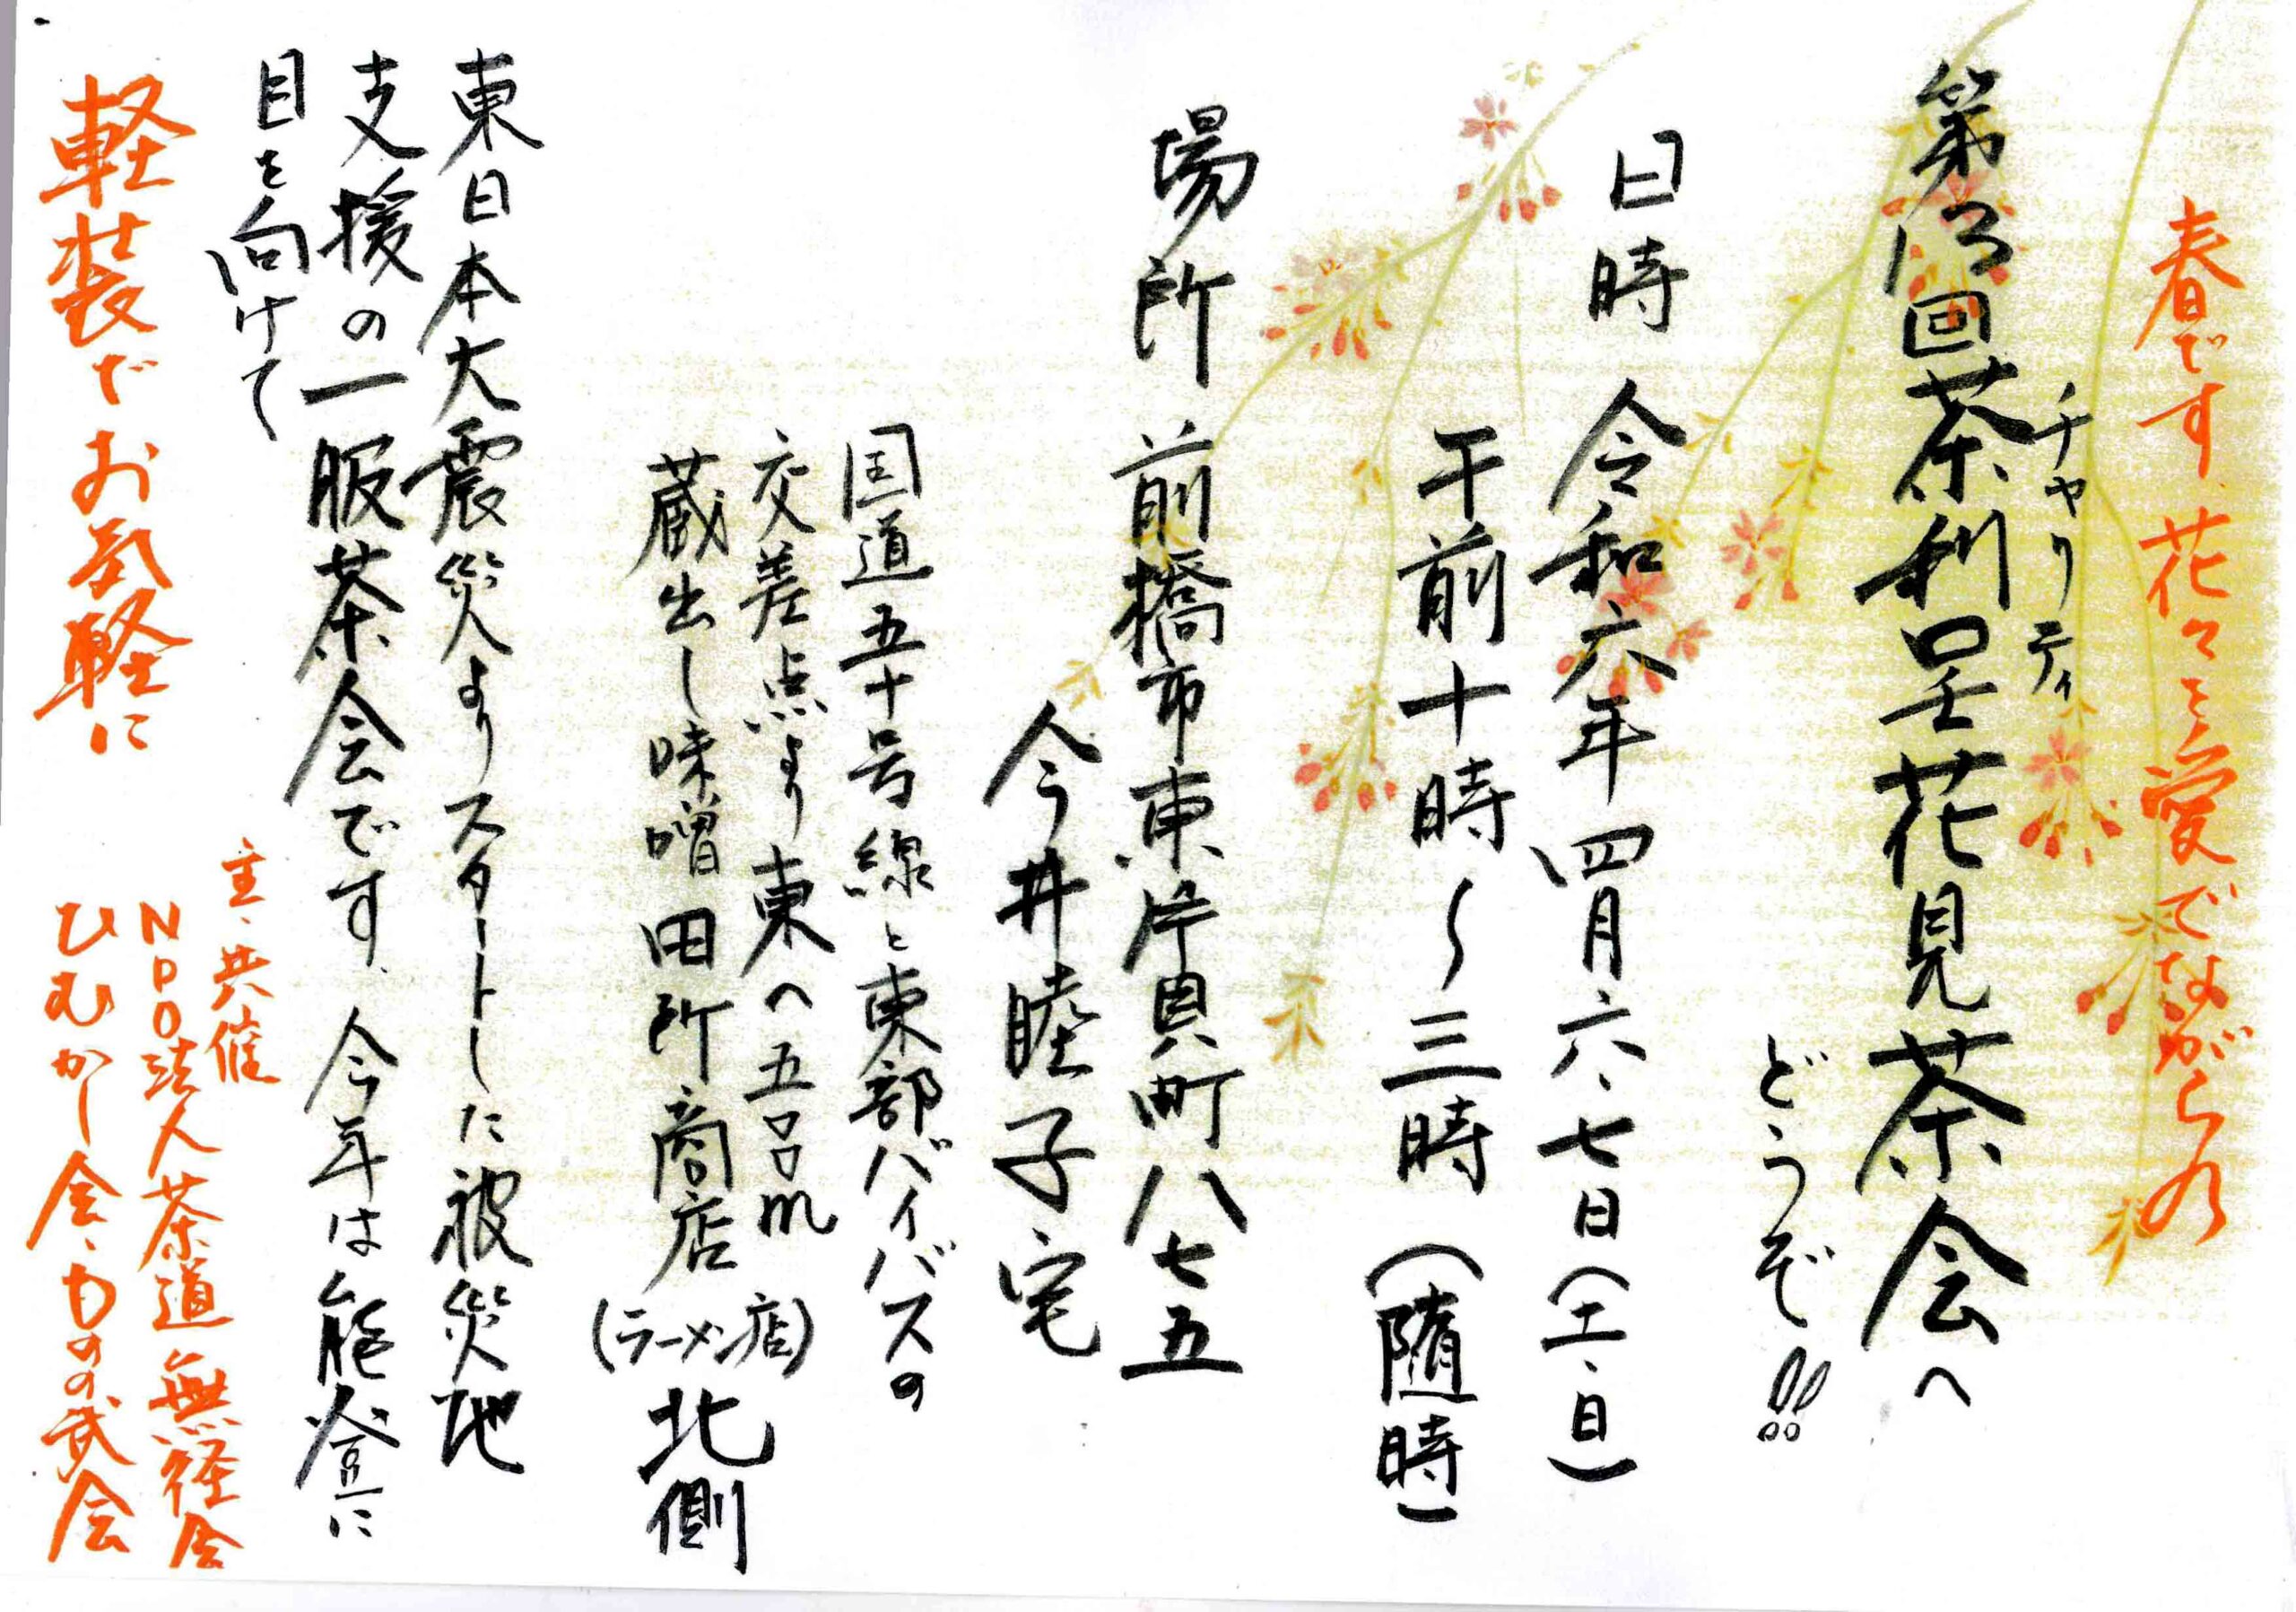 春です、花々を愛でながらの
第13回茶利呈花見茶会へ
チャリティ
どうぞ!!
日時 令和六年四月六、七日(土、日)
午前十時～三時(随時)
場所 前橋市東片貝町八七五
今井睦子宅
国道五十号線と東部バイパスの
交差点より東へ五〇〇m
蔵出し味噌田所商店(ラーメン店)北側
東日本大震災よりスタートした被災地
支援の一服茶会です、今年は能登に
目を向けて
軽装でお気軽に
主、共催
NPO法人茶道無径会
ひむかし会、もの式会